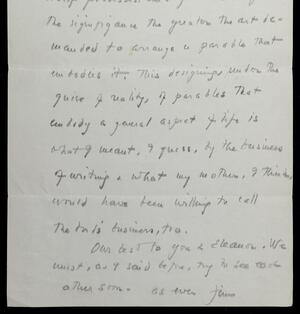 the signifigance the greater the art de-
manded to arrange a parable that
embodies it. This designing, under the
guise of reality, of parables that
embody a general aspect of life is
what I meant, I guess, by the business
of writing & what my mother, I think,
would have been willing to call
the Lord's business, too.
Our best to you & Eleanor. We
must, as I said before, try to see each
other soon. As ever Jim